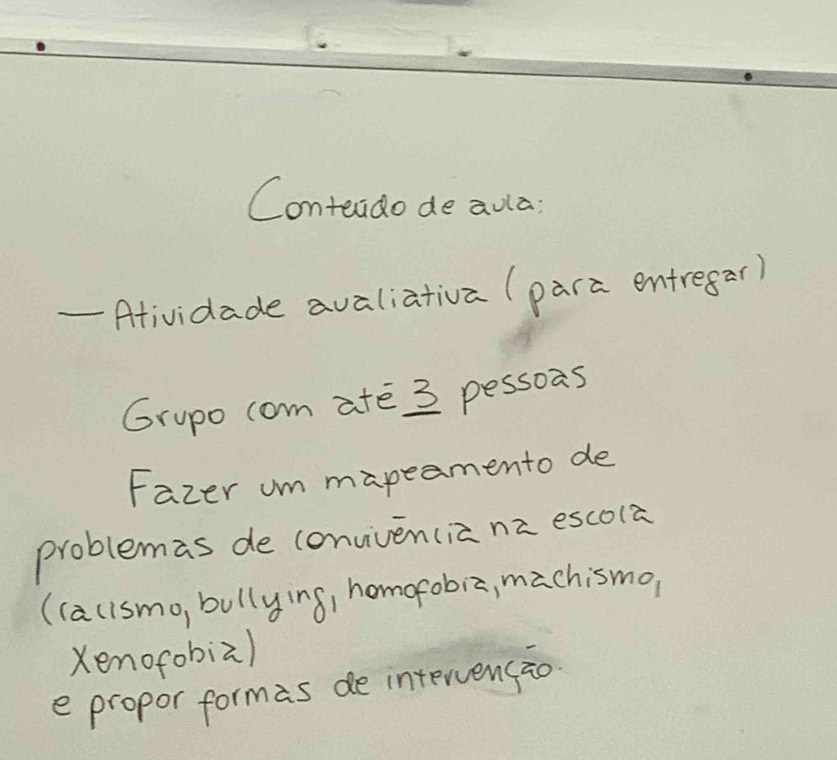 Conteúdo de aula:
— Atividade avaliativa (para entregar)
Grupo com até 3 pessoas
Fazer um mapeamento de
problemas de convivência na escola
(racismo, bullying, homofobia, machismo,
xenofobia)
e propor formas de intervenção.